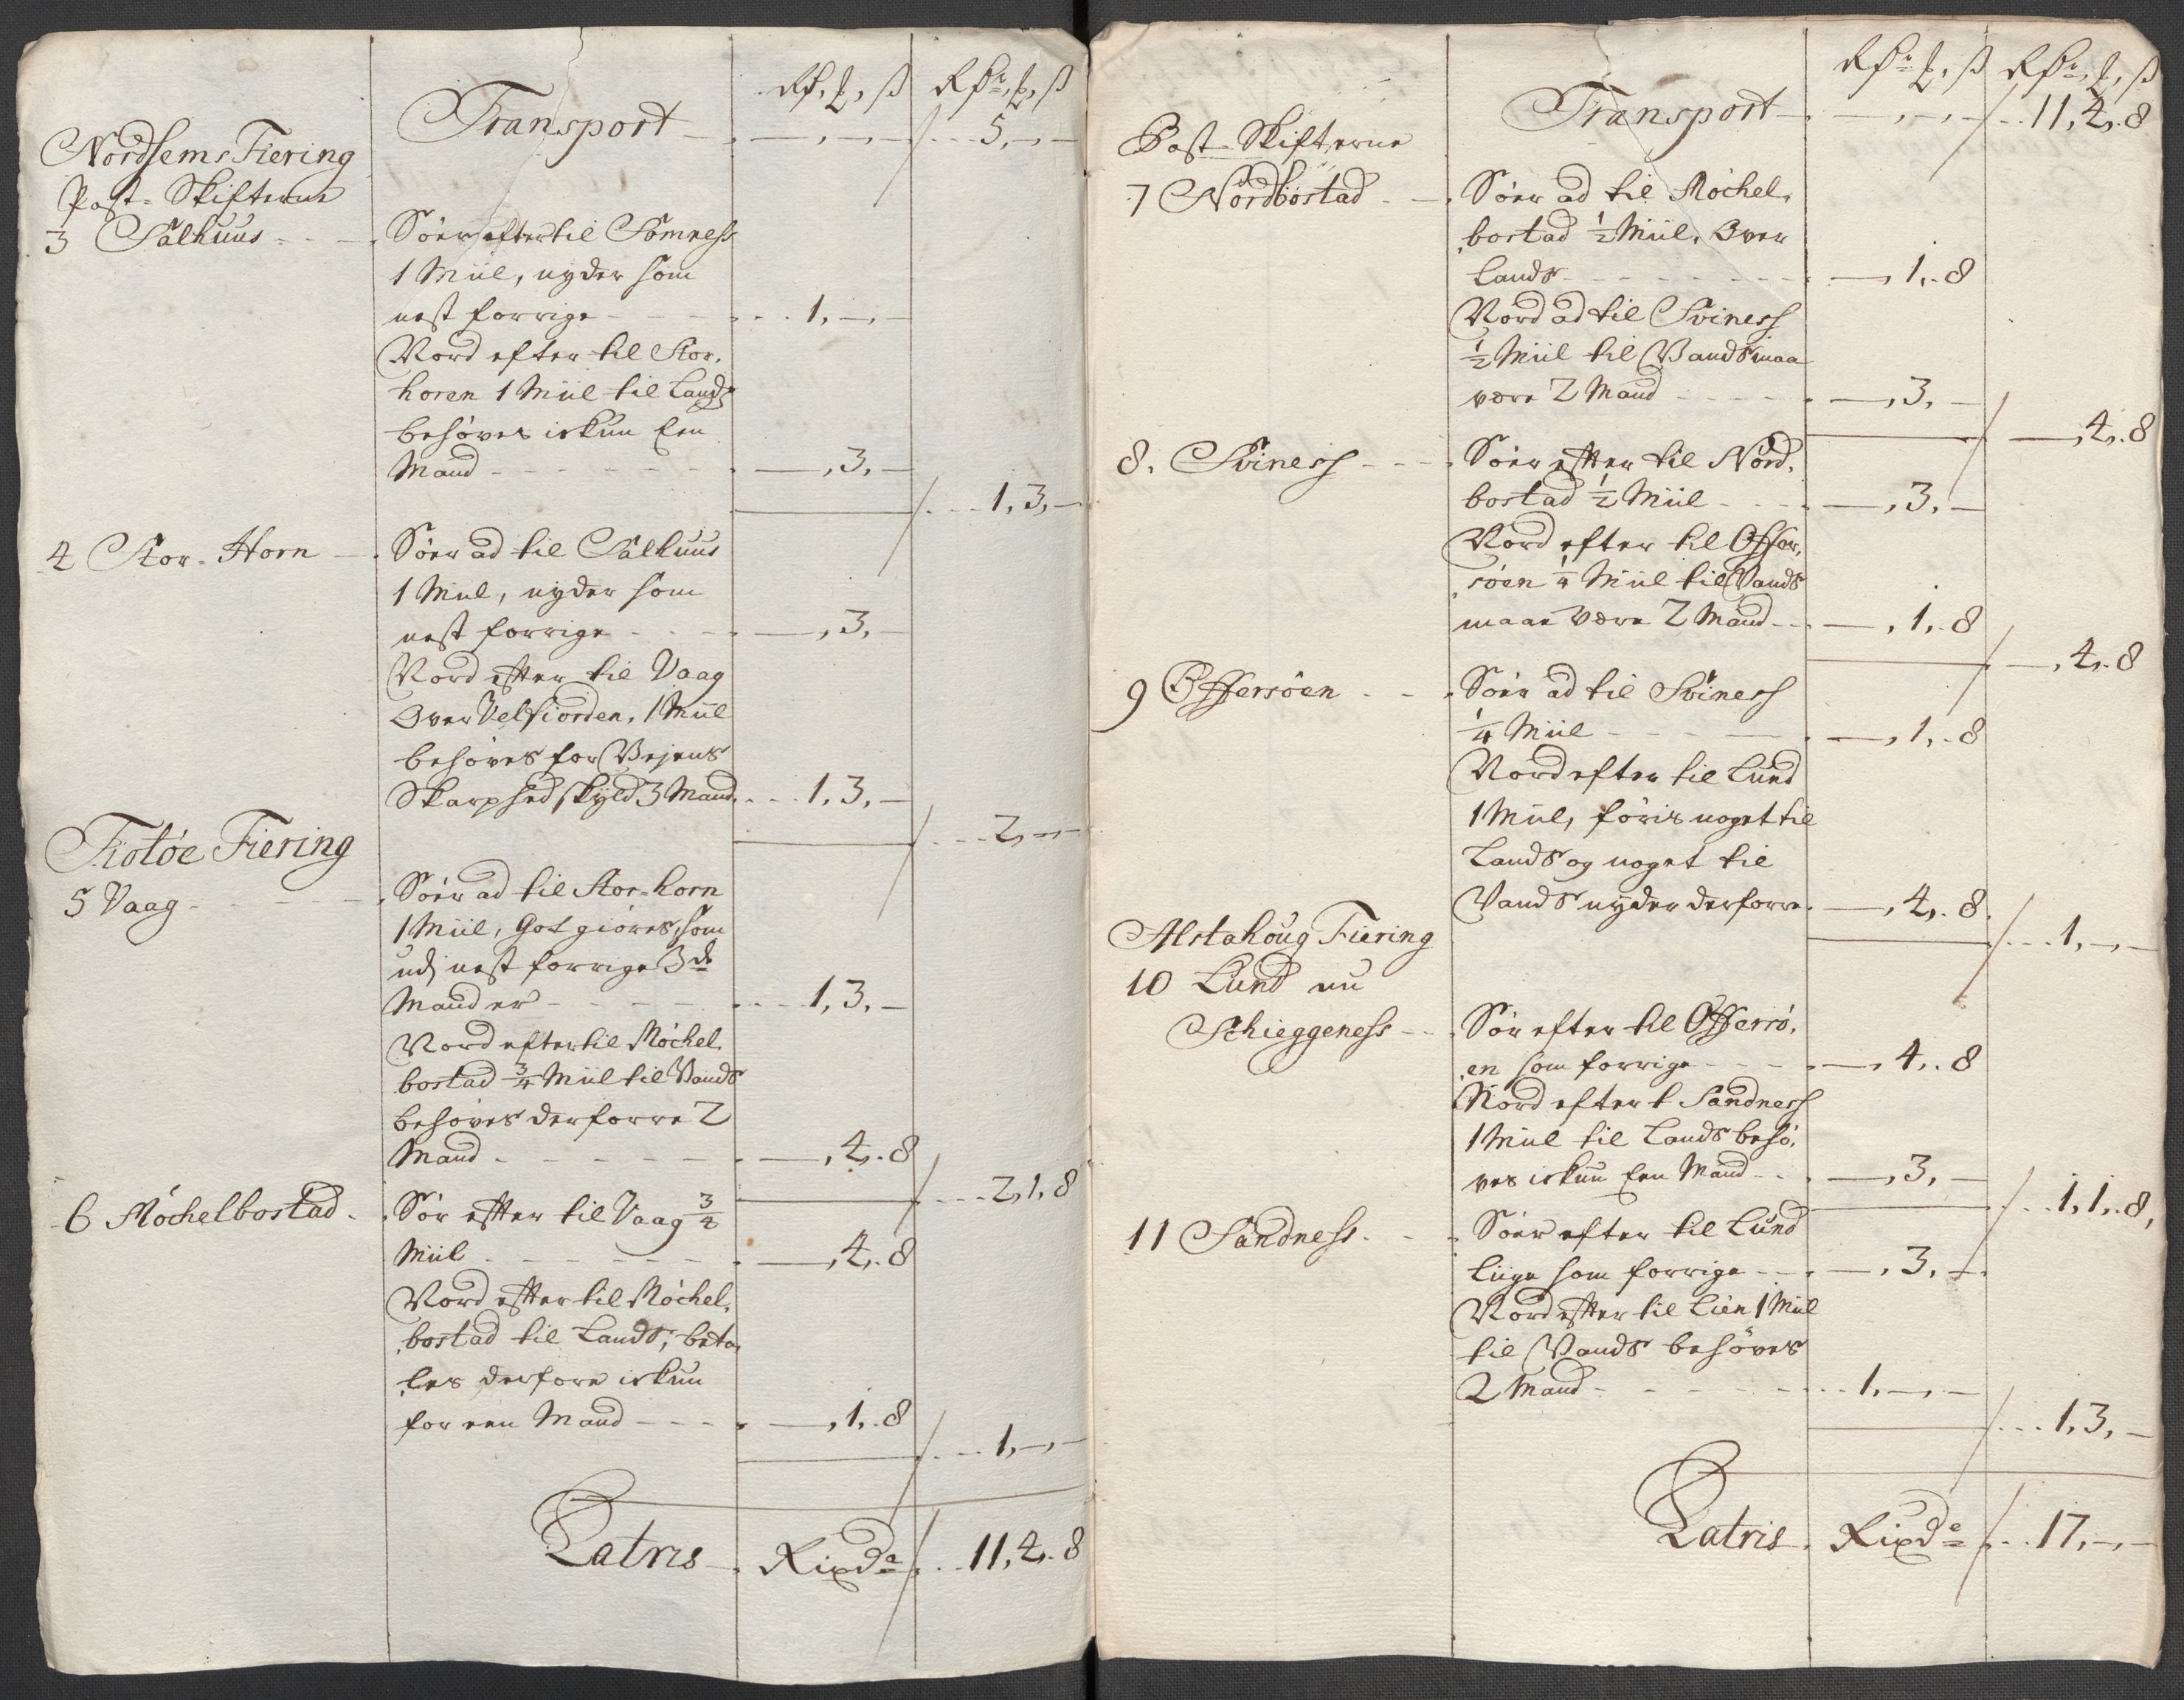 Rdr, ℔, ß Rdr, ℔, ß
Transport - - , - , - / - 5, -, -
Nordhems Fiering
Post-Skifterne
3 Salhuus - - - Søer efter til Sømness
1 Miil, nyder som
nest forrige - - - 1, -, -
Nord efter til Stor-
horen 1 Miil til Lands
behøves ickun Een
Mand - - - - , 3, -
/ - - 1, 3, -
4 Stor-Horn - Søer ad til Salhuus
1 Miil, nyder som
nest forrige - - - , 3, -
Nord efter til Vaag
Over Velfiorden, 1 Miil
behøves for Vejens
Skarphed skyld 3 Mand - - 1, 3, -
/ - - 2, -, -
Tiotøe Fiering
5 Vaag - - - Søer ad til Stor-horn
1 Miil, Got giøres, som
udj nest forrige 3de
Mand er - - - - 1, 3, -
Nord efter til Møchel-
bostad 3/4 Miil til Vands
behøves derforre 2
Mand - - - - , 4, 8
/ - - 2, 1, 8
6 Møchelbostad - Sør efter til Vaag 3/4
Miil - - - - , 4, 8
Nord efter til Møchel-
bostad til Lands, beta-
les derfore ickun
for een Mand - - - , 1, 8
/ - - 1, -, -
Latris - Rixdr / - - 11, 4, 8
Rdr, ℔, ß Rdr, ℔, ß
Transport - - , - , - / - - 11, 4, 8
Post-Skifterne
7 Nordbostad - - Søer ad til Møchel-
bostad 1/2 Miil, Over
Lands - - - - , 1, 8
Nord ad til Sviness
1/2 Miil til Vands maa
være 2 Mand - - - , 3, -
/ - , 4, 8
8, Sviness - - - Søer efter til Nord-
bostad 1/2 Miil - - - , 3, -
Nord efter til Offer-
søen 1/4 Miil til Vands
maae være 2 Mand - - - , 1, 8
/ - , 4, 8
9 Offersøen - - Søer ad til Sviness
1/4 Miil - - - - , 1, 8
Nord efter til Lund
1 Miil, føris noget til
Lands og noget til
Vands nyder derforre - , 4, 8
/ - - 1, -, -
Alstahoug Fiering
10 Lund nu
Schieggeness - - Sør efter til Offersø-
en som forrige - - - , 4, 8
Nord efter t Sandness
1 Miil til Lands behø-
ves ickun Een Mand - - - , 3, -
/ - - 1, 1, 8,
11 Sandness - - Søer efter til Lund
liige som forrige - - - , 3, -
Nord efter til Lien 1 Miil
til Vands behøves
2 Mand - - - - 1, -, -
/ - - 1, 3, -
Latris - Rixdr / - - 17, -, -